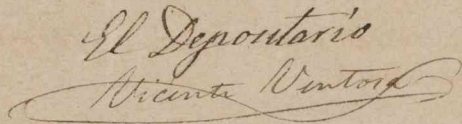 El Depositario
Vicente Ventosa